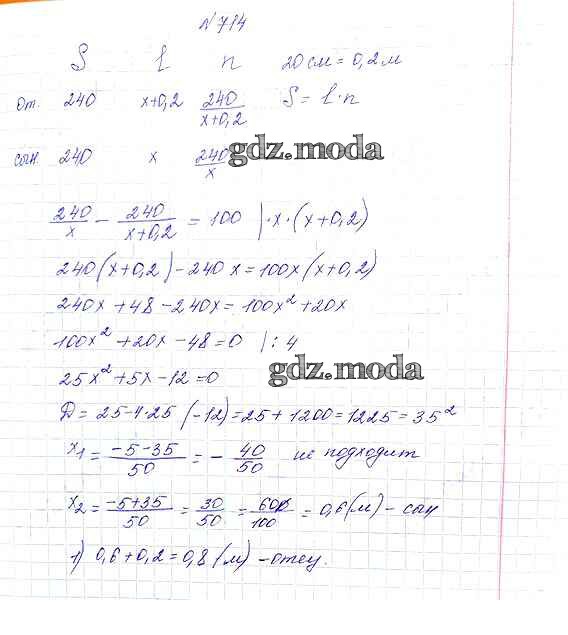 №714
S l n 20 см = 0,2 м
от. 240 x+0,2 240/(x+0,2) S = l·n
сын 240 x 240/x gdz.moda
240/x − 240/(x+0,2) = 100 |·x·(x+0,2)
240(x+0,2)−240x=100x(x+0,2)
240x+48−240x=100x²+20x
100x²+20x−48=0 |:4
gdz.moda
25x²+5x−12=0
D=25−4·25(−12)=25+1200=1225=35²
x₁=(−5−35)/50=−40/50 не подходит
x₂=(−5+35)/50=30/50=60/100=0,6(м)− сын
1) 0,6+0,2=0,8(м)−отец.